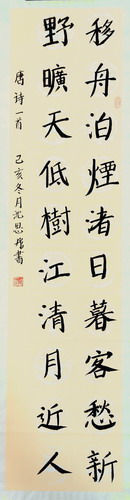 移舟泊煙渚日暮客愁新
野曠天低樹江清月近人
唐诗一首 己亥冬月沈思於書